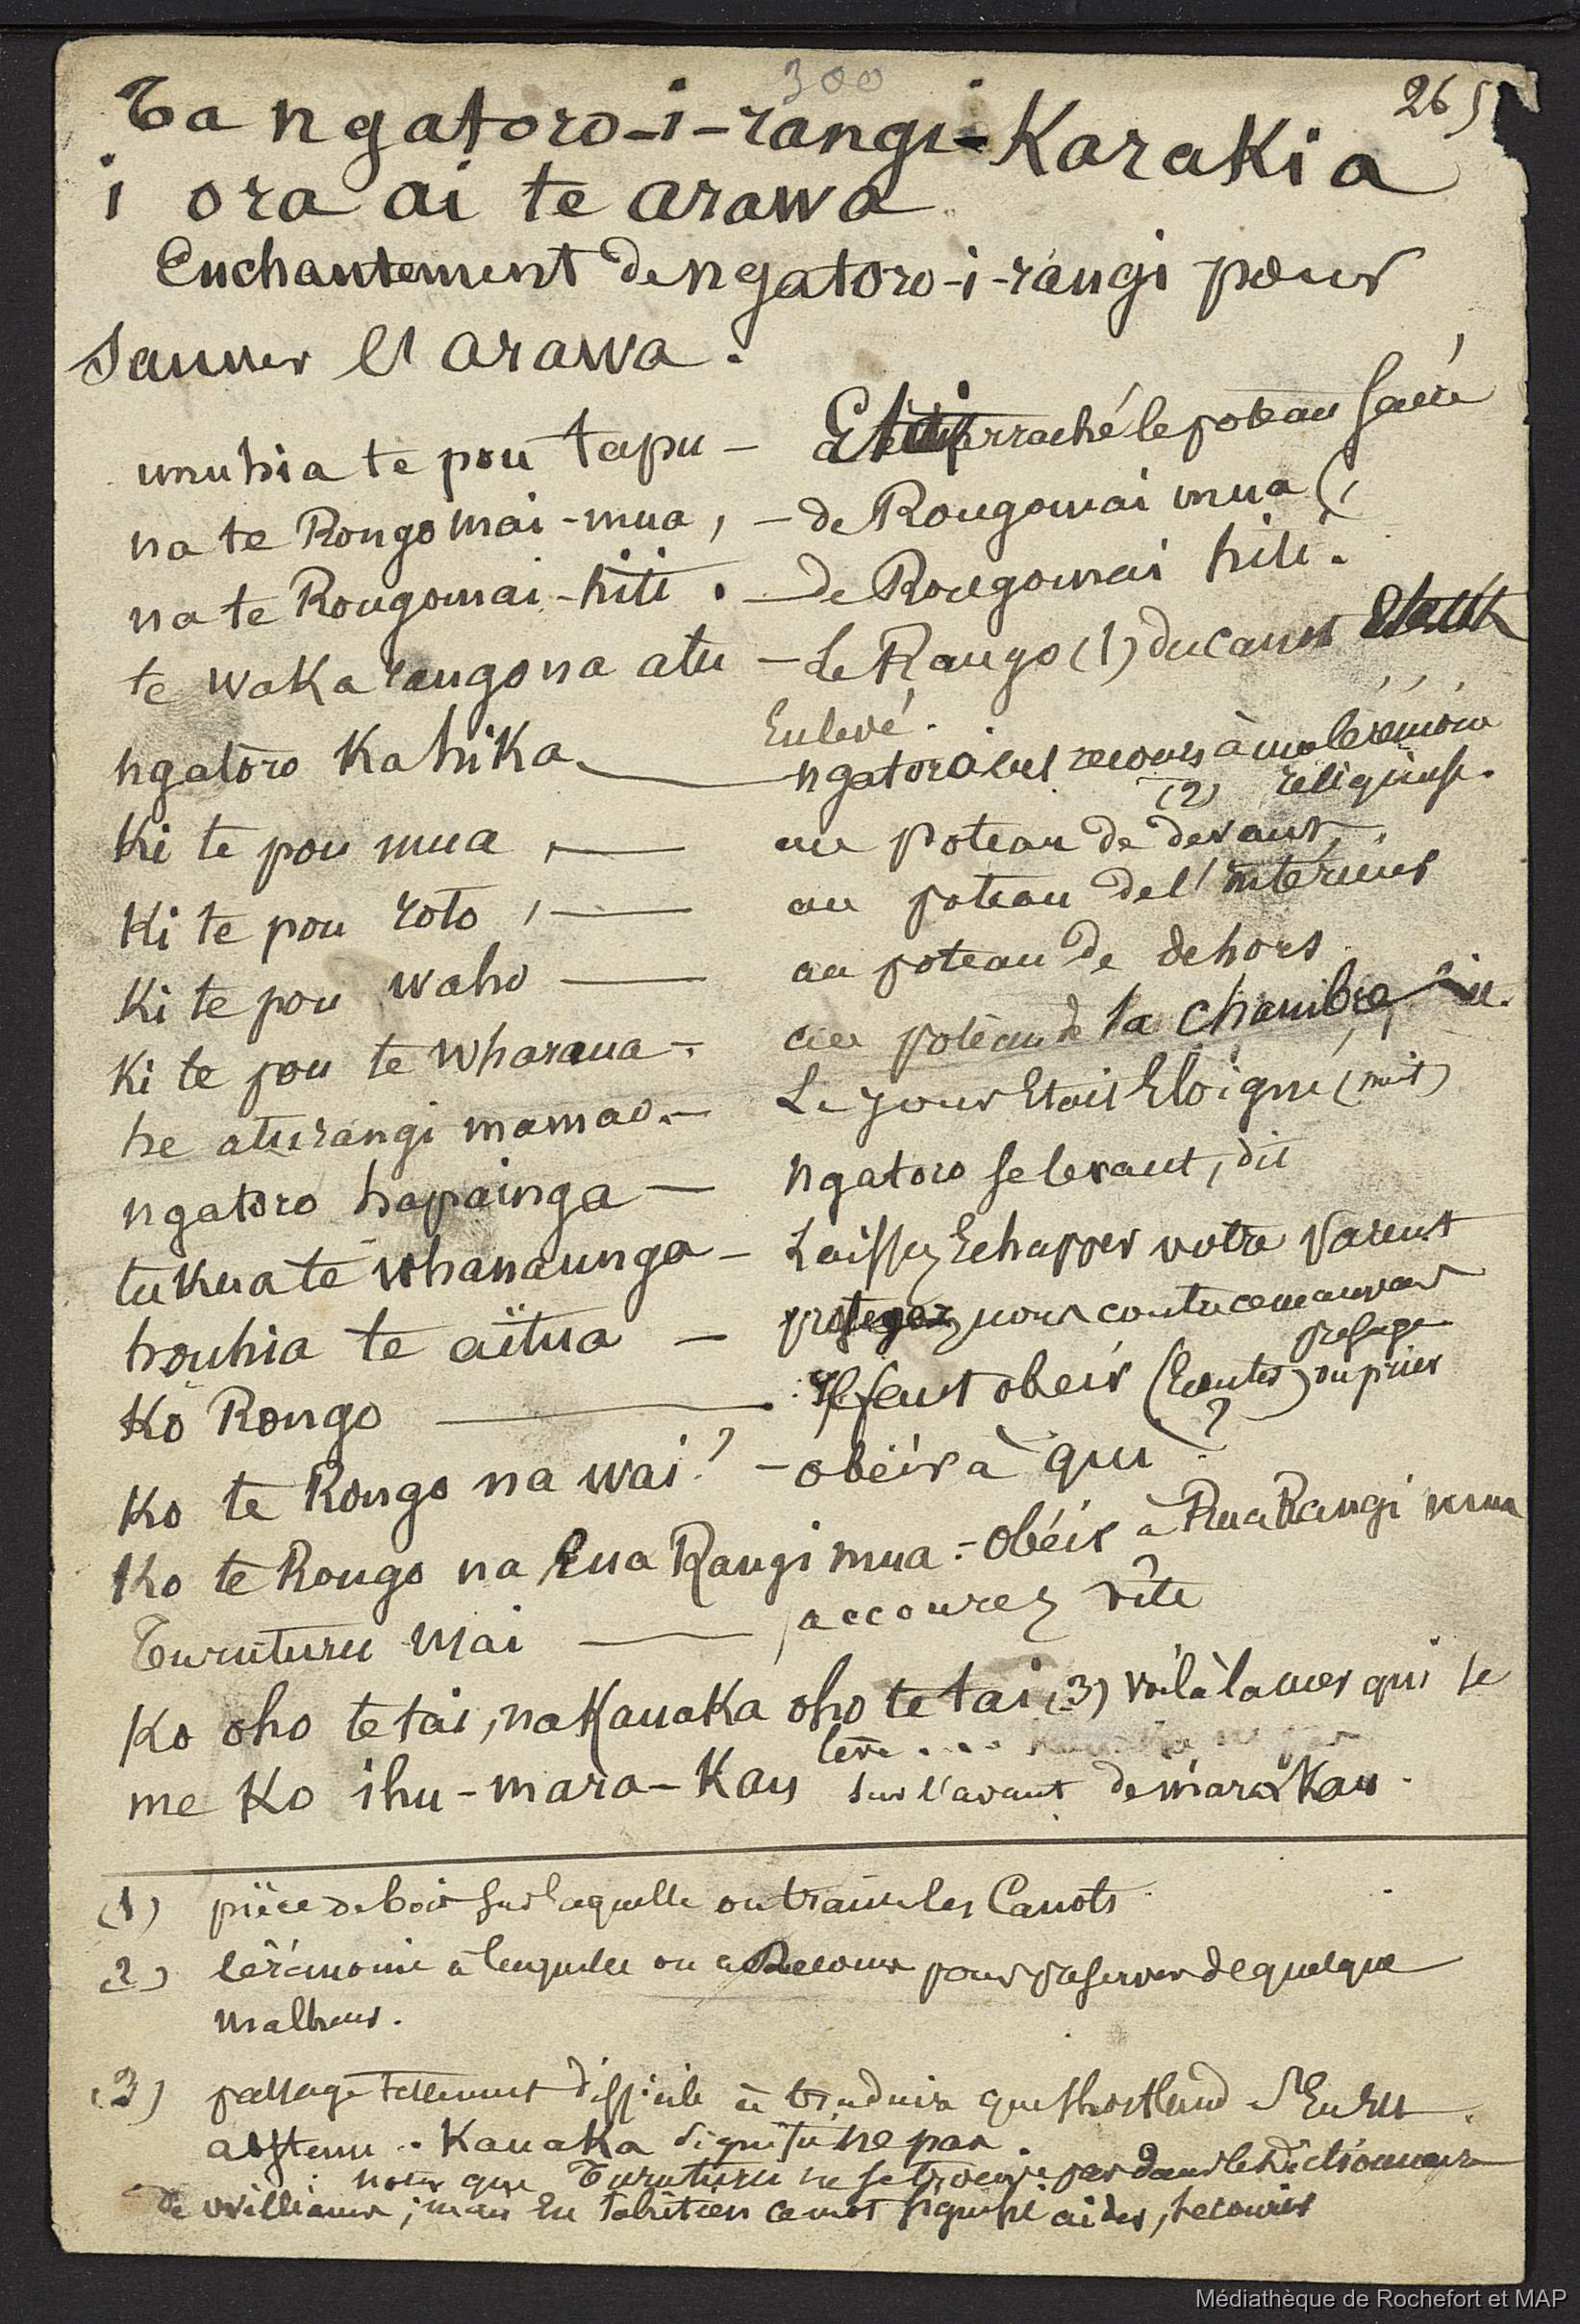 300
265
Ta ngatoro-i-rangi-Karakia
i ora ai te arawa
Enchantement de ngatoro-i-rangi pour
sauver l'arawa.
unuhia te pou tapu — arraché le poteau sacré
na te Rongomai-mua, — de Rongomai mua
na te Rongomai-hiti. — de Rongomai hiti.
te waka rango na atu — Le Rango (1) du canot
Enlevé.
ngatoro Kahika — ngatoro eut recours à une cérémonie
(2) religieuse.
Ki te pou mua, — au poteau de devant,
Ki te pou roto, — au poteau de l'intérieur
Ki te pou waho — au poteau de dehors
Ki te pou te wharaua — au poteau de la chambre
he aturangi mamao. — Le jour Etait Eloigné (nuit)
ngatoro hapainga — ngatoro se levant, dit
tukua te whanaunga — Laissez Echapper votre Parent
houhia te aïtua — protegez nous contre ce mauvais
presage
Ko Rongo — Il faut obeir (Ecouter) ou prier
Ko te Rongo na wai? — obéir à qui?
Ko te Rongo na Rua Rangi mua. — Obéir à Rua Rangi mua
Turuturu mai — accourez vite
Ko oho te tai, na Kauaka oho te tai (3) voilà la mer qui se
lève ...
me Ko ihu-mara-Kau sur l'avant de mara Kau.
(1) pièce de bois sur laquelle on traine les Canots
(2) Cérémonie à laquelle on a Recours pour préserver de quelque
malheur.
(3) passage tellement difficile à traduire que Shortland s'En est
abstenu. Kauaka signifie ne pas.
noter que Turuturu ne se trouve pas dans le Dictionnaire
de Williams; mais En tahitien ce mot signifie aider, secourir
Médiathèque de Rochefort et MAP